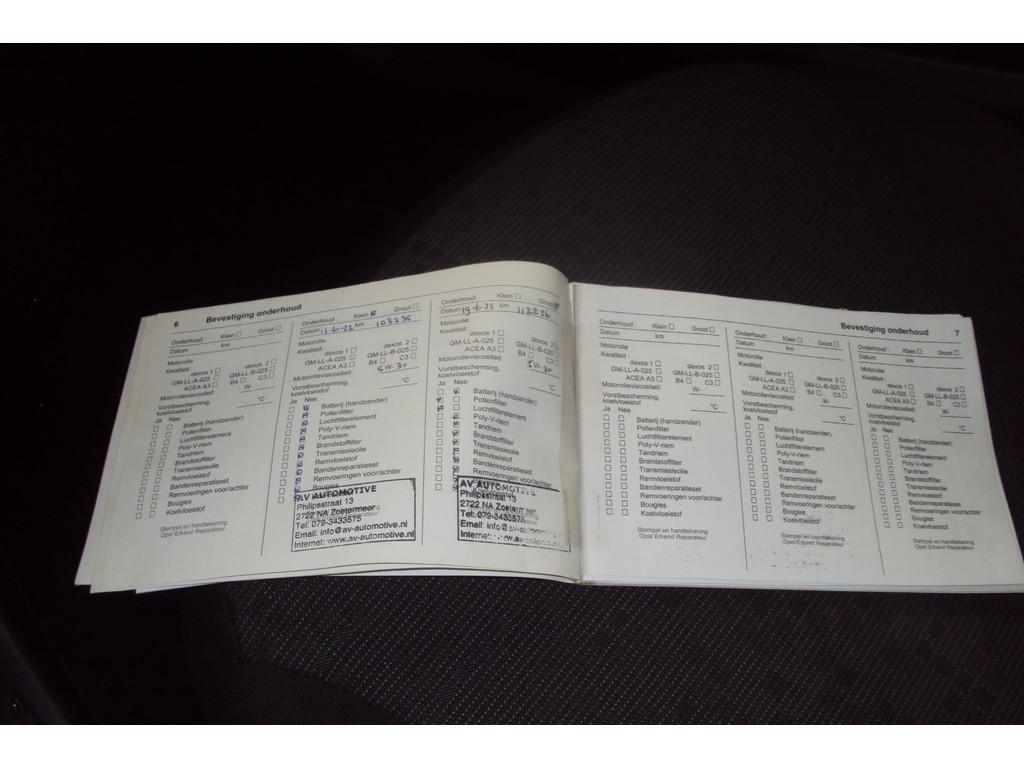 6 Bevestiging onderhoud
Klein Groot
Datum km
Motorolie
Kwaliteit: dexos 1 dexos 2
GM-LL-A-025 GM-LL-B-025
ACEA A3 B4 C3
Motorolieviscositeit: W-
Vorstbescherming, °C
koelvloeistof
Ja Nee
Batterij (handzender)
Pollenfilter
Luchtfilterelement
Poly-V-riem
Tandriem
Brandstoffilter
Transmissieolie
Remvloeistof
Bandenreparatieset
Remvoeringen voor/achter
Bougies
Koelvloeistof
Stempel en handtekening
Opel Erkend Reparateur
Onderhoud: Klein Groot
Datum 13-6-22 km 103235
Motorolie
Kwaliteit: dexos 1 dexos 2
GM-LL-A-025 GM-LL-B-025
ACEA A3 B4 C3
Motorolieviscositeit: 5W-30
Vorstbescherming, °C
koelvloeistof
Ja Nee
Batterij (handzender)
Pollenfilter
Luchtfilterelement
Poly-V-riem
Tandriem
Brandstoffilter
Transmissieolie
Remvloeistof
Bandenreparatieset
Remvoeringen voor/achter
Bougies
AV AUTOMOTIVE
Philipsstraat 13
2722 NA Zoetermeer
Tel: 079-3433575
Email: info@av-automotive.nl
Internet: www.av-automotive.nl
Onderhoud: Klein Groot
Datum 19-6-23 km 112236
Motorolie
Kwaliteit: dexos 1 dexos 2
GM-LL-A-025 GM-LL-B-025
ACEA A3 B4 C3
Motorolieviscositeit: 5W-30
Vorstbescherming, °C
koelvloeistof
Ja Nee
Batterij (handzender)
Pollenfilter
Luchtfilterelement
Poly-V-riem
Tandriem
Brandstoffilter
Transmissieolie
Remvloeistof
Bandenreparatieset
Remvoeringen voor/achter
AV AUTOMOTIVE
Philipsstraat 13
2722 NA Zoetermeer
Tel: 079-3433575
Email: info@av-automotive
Internet: www.av-automotive
Bevestiging onderhoud 7
Onderhoud: Klein Groot
Datum km
Motorolie
Kwaliteit: dexos 1 dexos 2
GM-LL-A-025 GM-LL-B-025
ACEA A3 B4 C3
Motorolieviscositeit: W-
Vorstbescherming, °C
koelvloeistof
Ja Nee
Batterij (handzender)
Pollenfilter
Luchtfilterelement
Poly-V-riem
Tandriem
Brandstoffilter
Transmissieolie
Remvloeistof
Bandenreparatieset
Remvoeringen voor/achter
Bougies
Koelvloeistof
Stempel en handtekening
Opel Erkend Reparateur
Onderhoud: Klein Groot
Datum km
Motorolie
Kwaliteit: dexos 1 dexos 2
GM-LL-A-025 GM-LL-B-025
ACEA A3 B4 C3
Motorolieviscositeit: W-
Vorstbescherming, °C
koelvloeistof
Ja Nee
Batterij (handzender)
Pollenfilter
Luchtfilterelement
Poly-V-riem
Tandriem
Brandstoffilter
Transmissieolie
Remvloeistof
Bandenreparatieset
Remvoeringen voor/achter
Bougies
Koelvloeistof
Stempel en handtekening
Opel Erkend Reparateur
Onderhoud: Klein Groot
Datum km
Motorolie
Kwaliteit: dexos 1 dexos 2
GM-LL-A-025 GM-LL-B-025
ACEA A3 B4 C3
Motorolieviscositeit: W-
Vorstbescherming, °C
koelvloeistof
Ja Nee
Batterij (handzender)
Pollenfilter
Luchtfilterelement
Poly-V-riem
Tandriem
Brandstoffilter
Transmissieolie
Remvloeistof
Bandenreparatieset
Remvoeringen voor/achter
Bougies
Koelvloeistof
Stempel en handtekening
Opel Erkend Reparateur